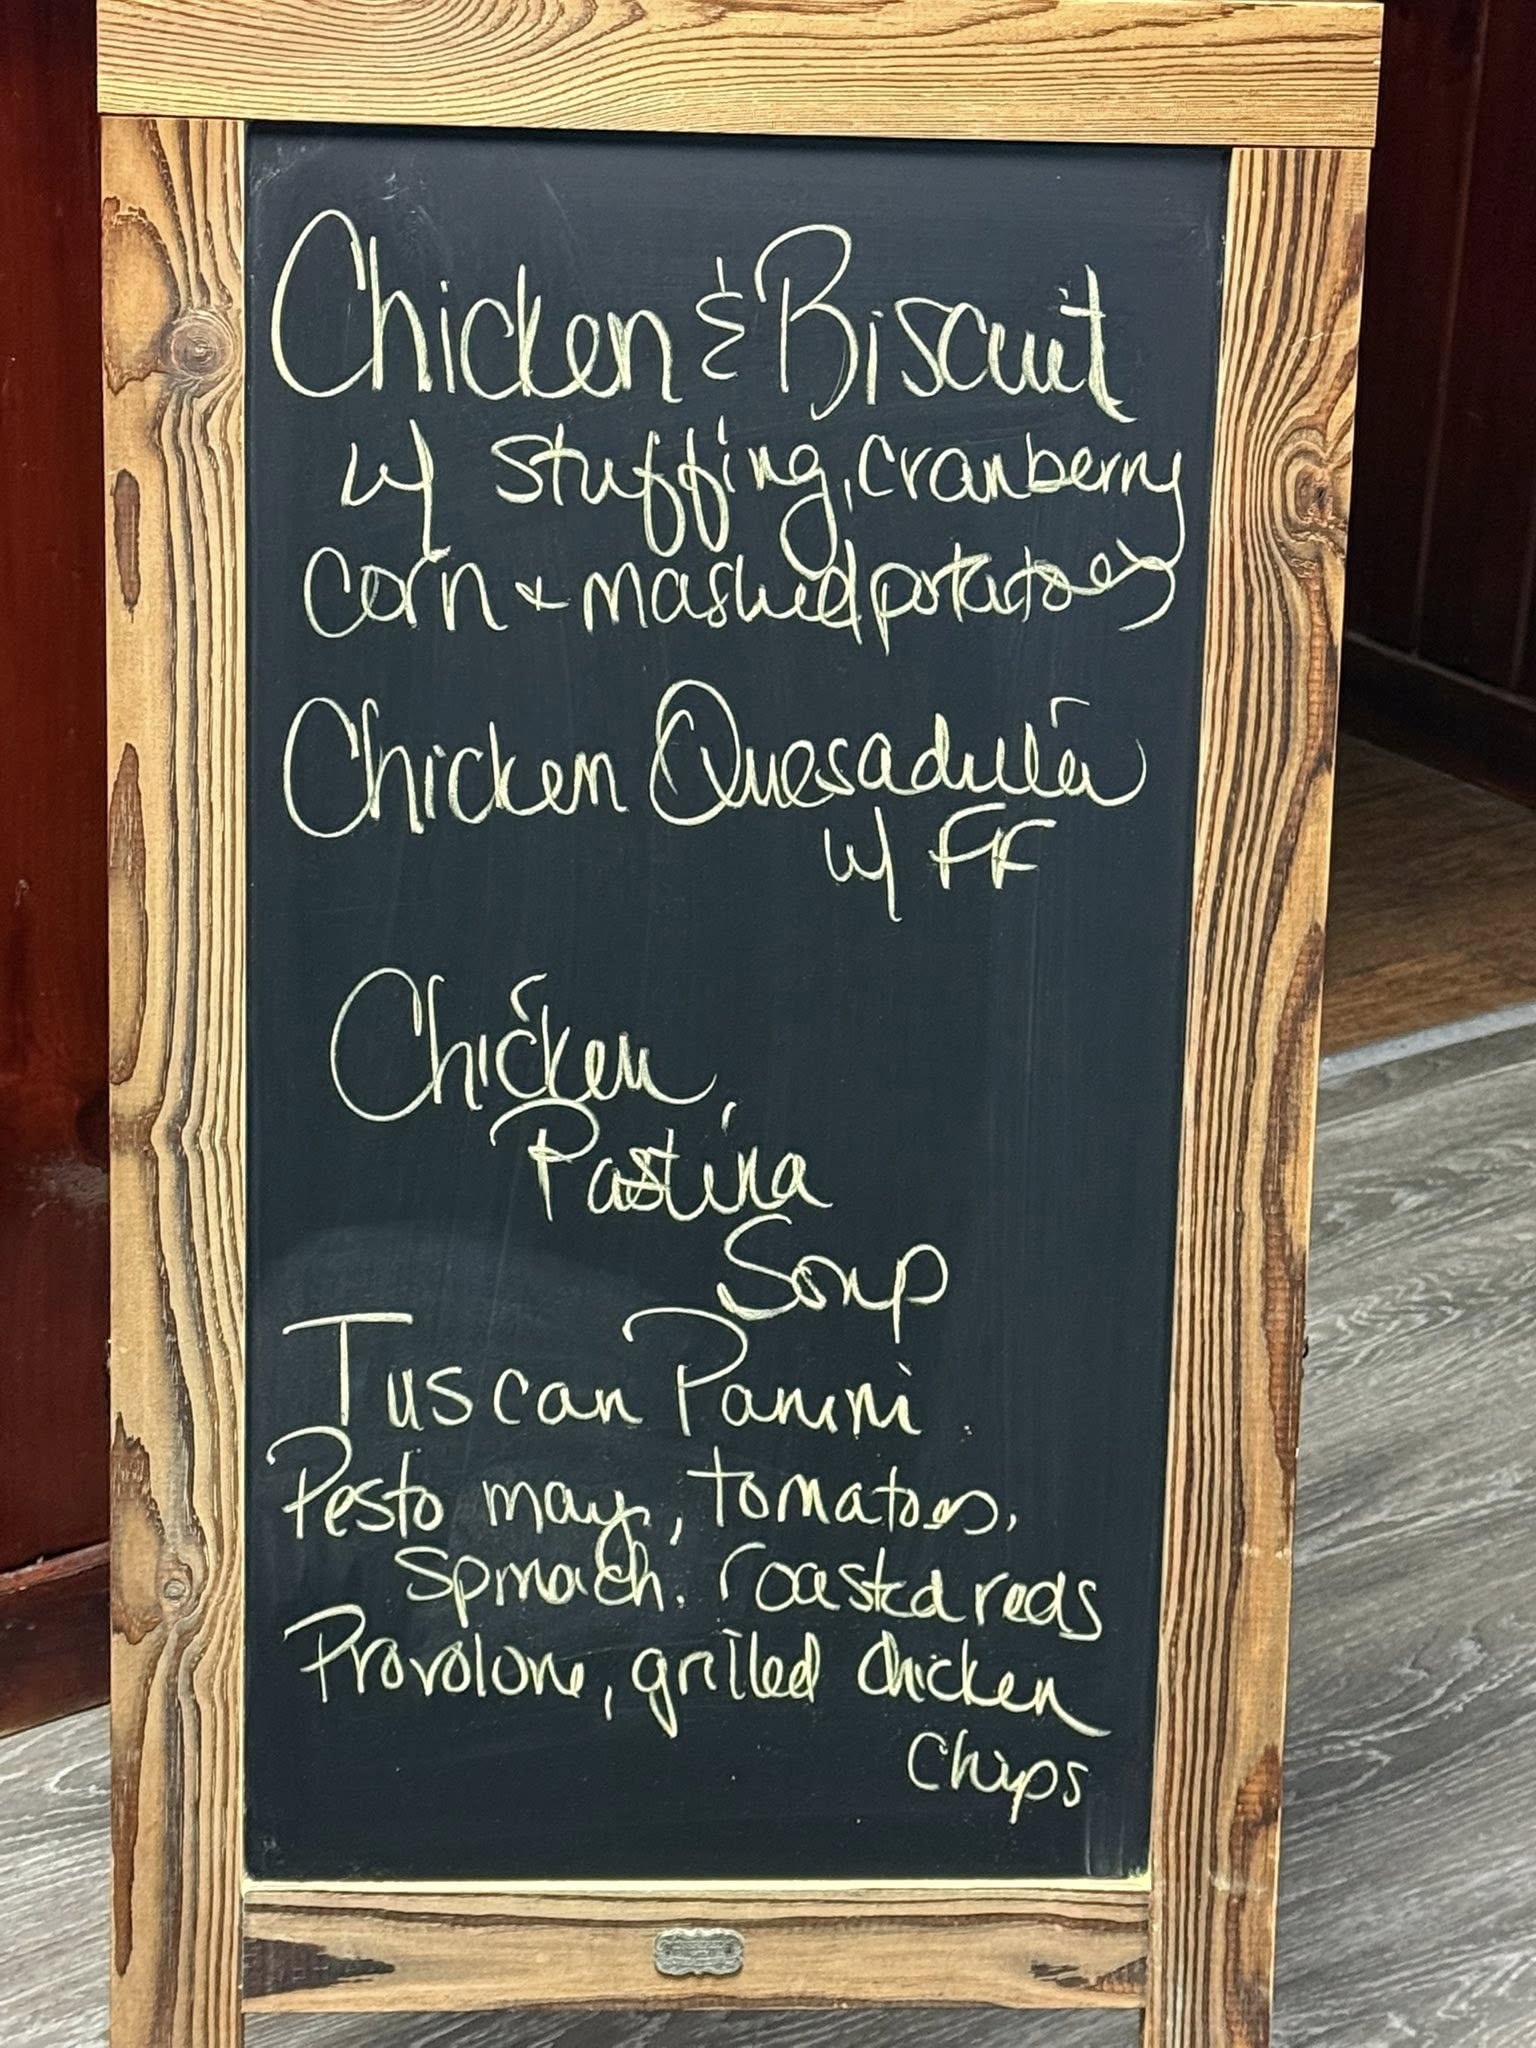 Chicken & Biscuit
w/ stuffing, cranberry
corn + mashed potatoes
Chicken Quesadilla
w/ FF
Chicken
Pastina
Soup
Tuscan Panini
Pesto mayo, tomatoes,
spinach, roasted reds
Provolone, grilled chicken
chips